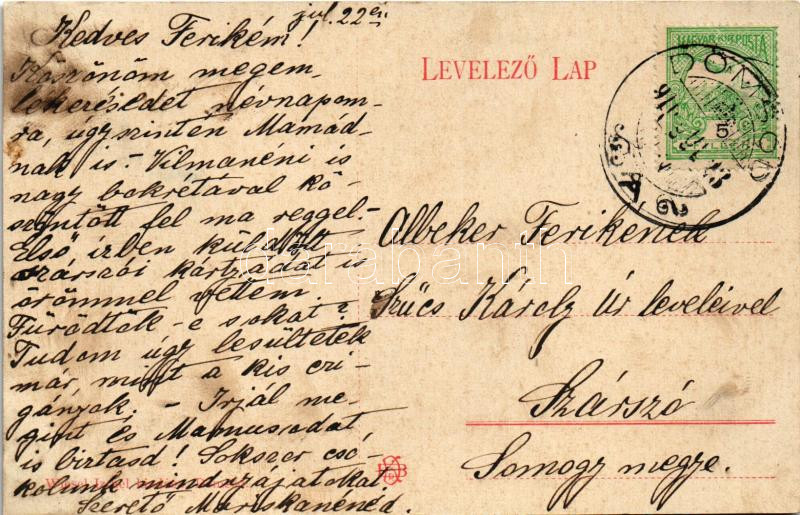 jul. 22 én
Kedves Ferikém!
Köszönöm megem-
lékezésedet névnapom-
ra, úgyszintén Mamád-
nak is - Vilmanéni is
nagy bokrétával kö-
szöntött fel ma reggel.-
Első izben küldött
szárszói kártyádat is
örömmel vettem.
Fürödtök-e sokat?
Tudom úgy lesültetek
már, mint a kis czi-
gányok. - Irjál me-
gint és Mamusodat
is biztasd! Sokszor csó-
kolunk mindnyájatokat.
Szerető Mariskanénéd.
LEVELEZŐ LAP
MAGYAR KIR. POSTA
5
DÖMSÖD
Albeker Ferikenek
Szűcs Károly úr leveleivel
Szárszó
Somogy megye.
darabanth